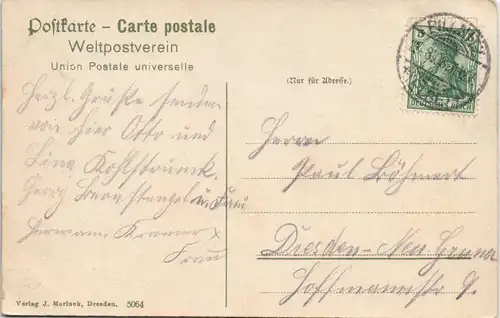 Postkarte – Carte postale
Weltpostverein
Union Postale universelle
(Nur für Adresse.)
Herzl. Grüße senden
von hier Otto und
Lina Kohlstrunck
Georg Bernstengel u. Frau
Hermann Kramer &
Frau
Herrn
Paul Böhmert
Dresden-Neu Gruna
Hoffmannstr 9.
Verlag J. Horlock, Dresden. 5064